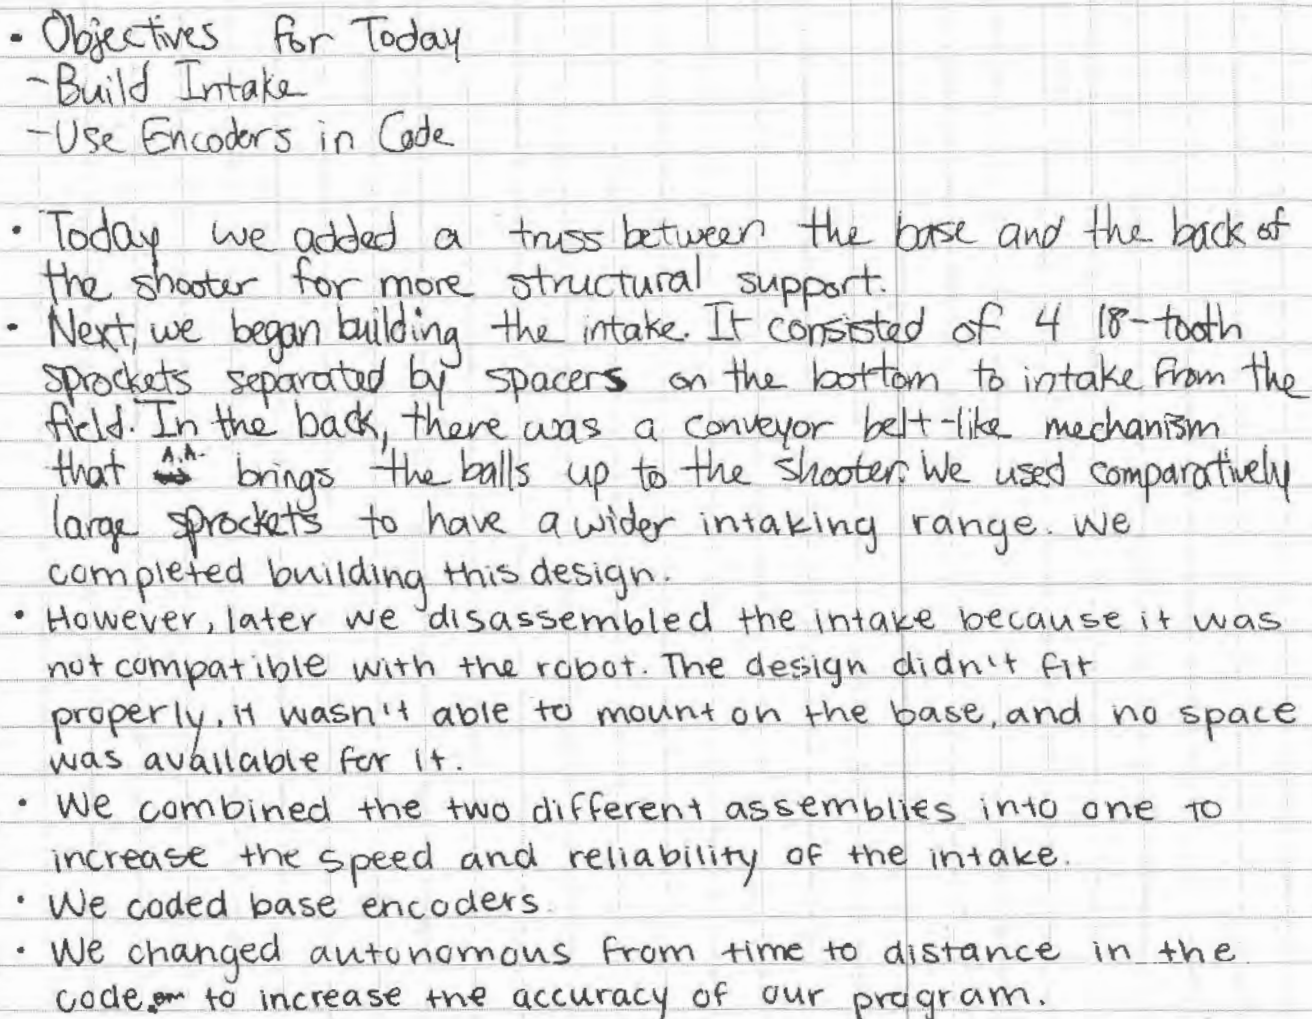 • Objectives for Today
- Build Intake
- Use Encoders in Code
• Today we added a truss between the base and the back of
the shooter for more structural support.
• Next, we began building the intake. It consisted of 4 18-tooth
sprockets separated by spacers on the bottom to intake from the
field. In the back, there was a conveyor belt-like mechanism
that A.A. brings the balls up to the shooter. We used comparatively
large sprockets to have a wider intaking range. We
completed building this design.
• However, later we disassembled the intake because it was
not compatible with the robot. The design didn't fit
properly, it wasn't able to mount on the base, and no space
was available for it.
• We combined the two different assemblies into one to
increase the speed and reliability of the intake.
• We coded base encoders.
• We changed autonomous from time to distance in the
code to increase the accuracy of our program.